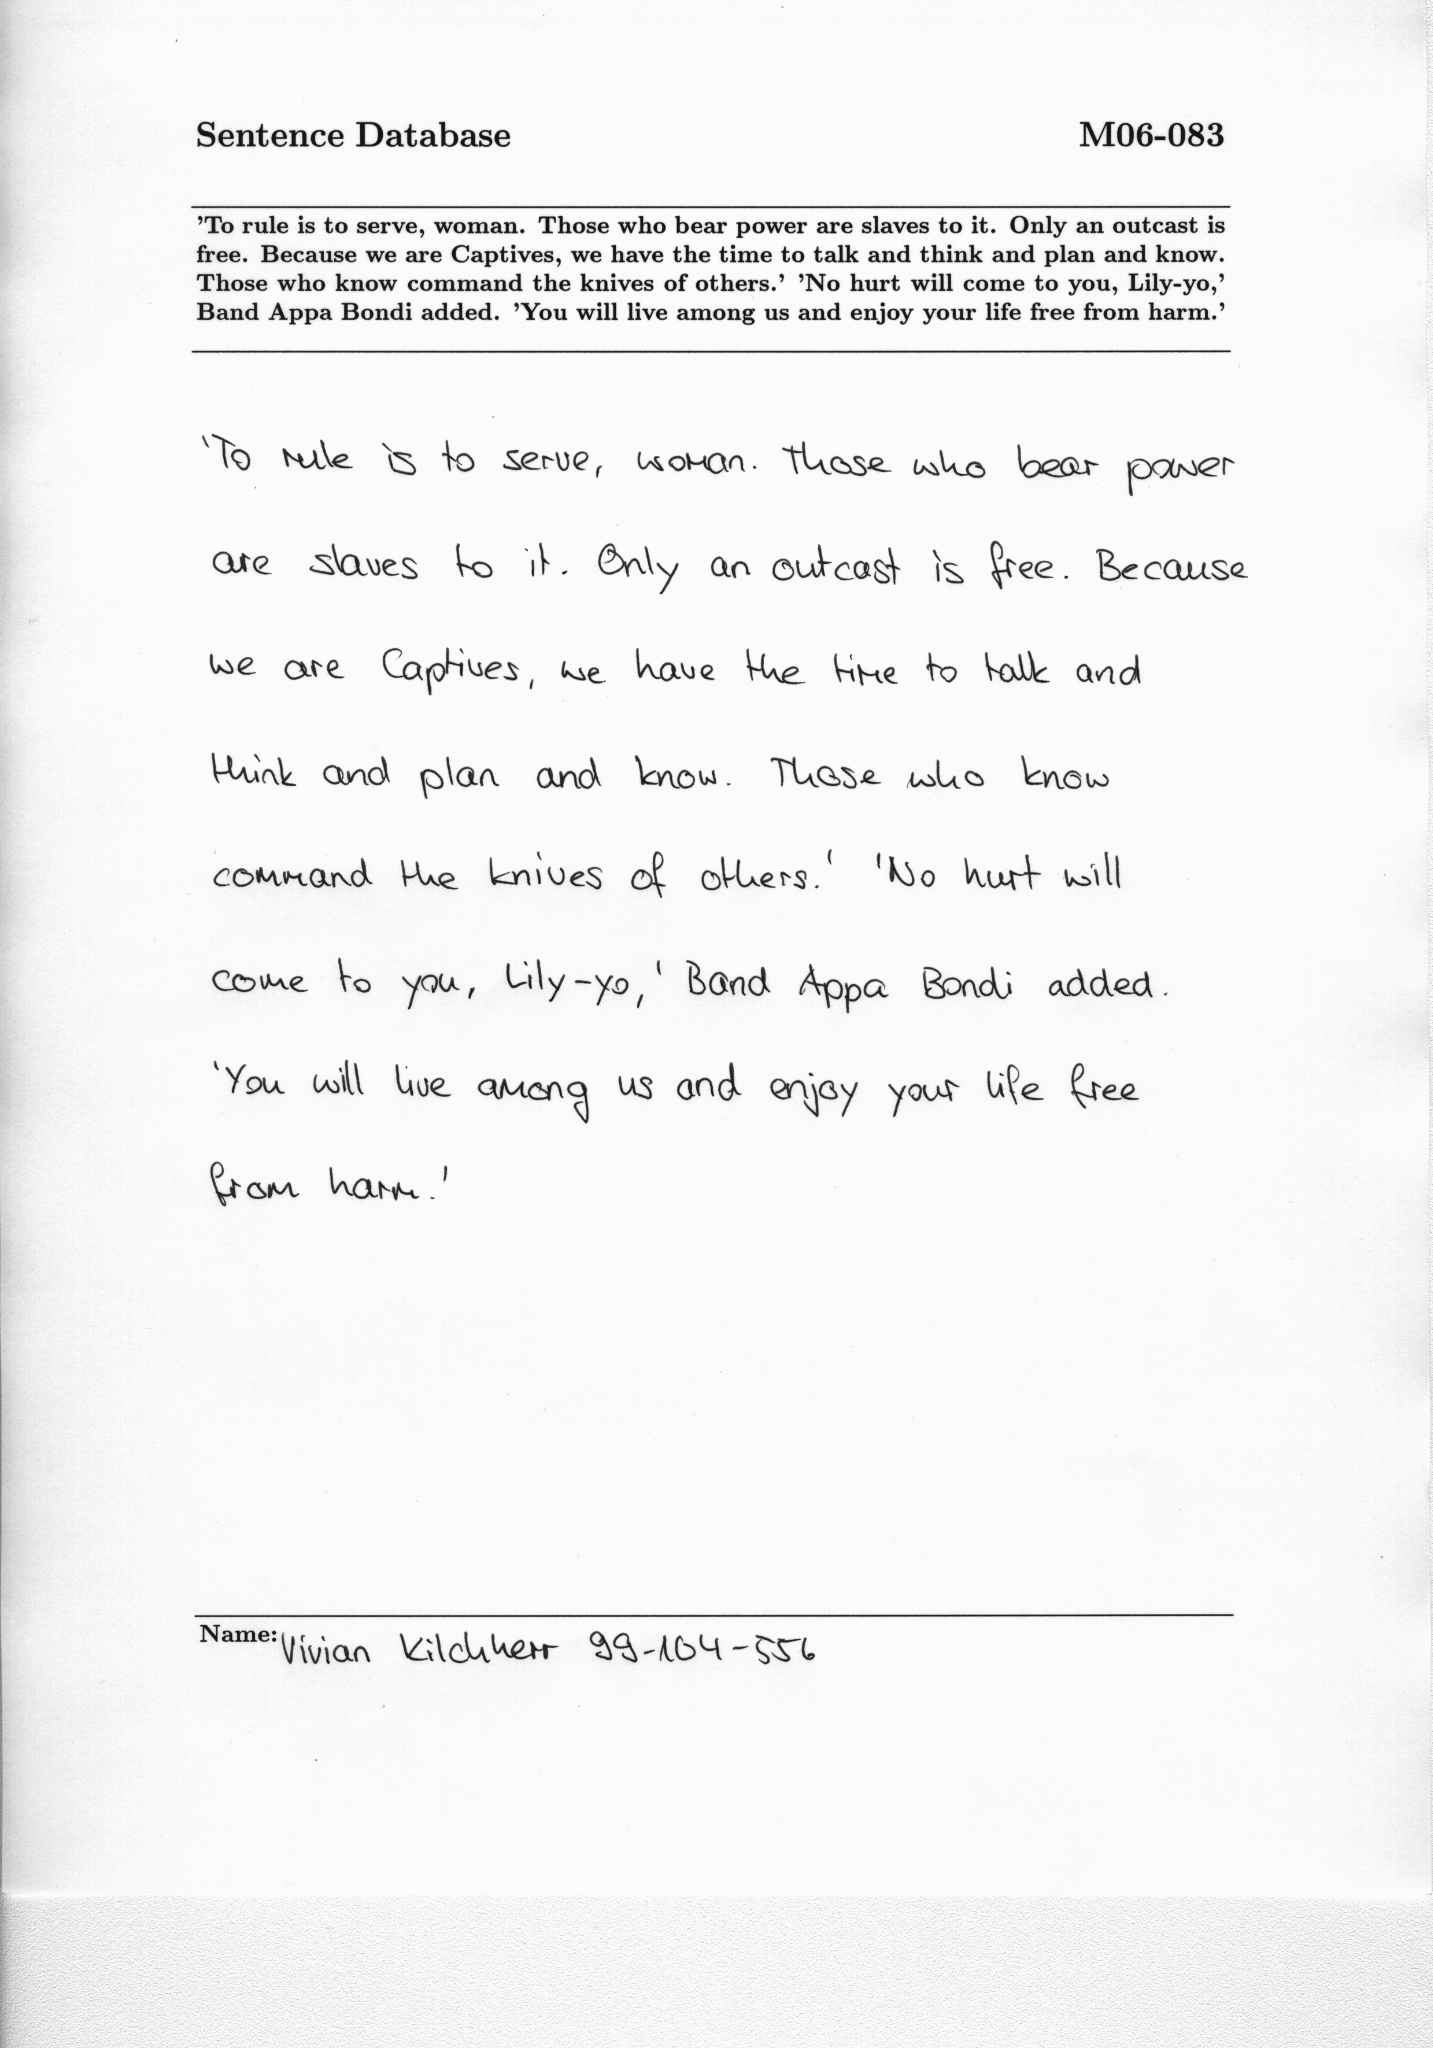 Sentence Database M06-083
'To rule is to serve, woman. Those who bear power are slaves to it. Only an outcast is
free. Because we are Captives, we have the time to talk and think and plan and know.
Those who know command the knives of others.' 'No hurt will come to you, Lily-yo,'
Band Appa Bondi added. 'You will live among us and enjoy your life free from harm.'
'To rule is to serve, woman. Those who bear power
are slaves to it. Only an outcast is free. Because
we are Captives, we have the time to talk and
think and plan and know. Those who know
command the knives of others.' 'No hurt will
come to you, Lily-yo,' Band Appa Bondi added.
'You will live among us and enjoy your life free
from harm.'
Name: Vivian Kilchherr 99-104-556